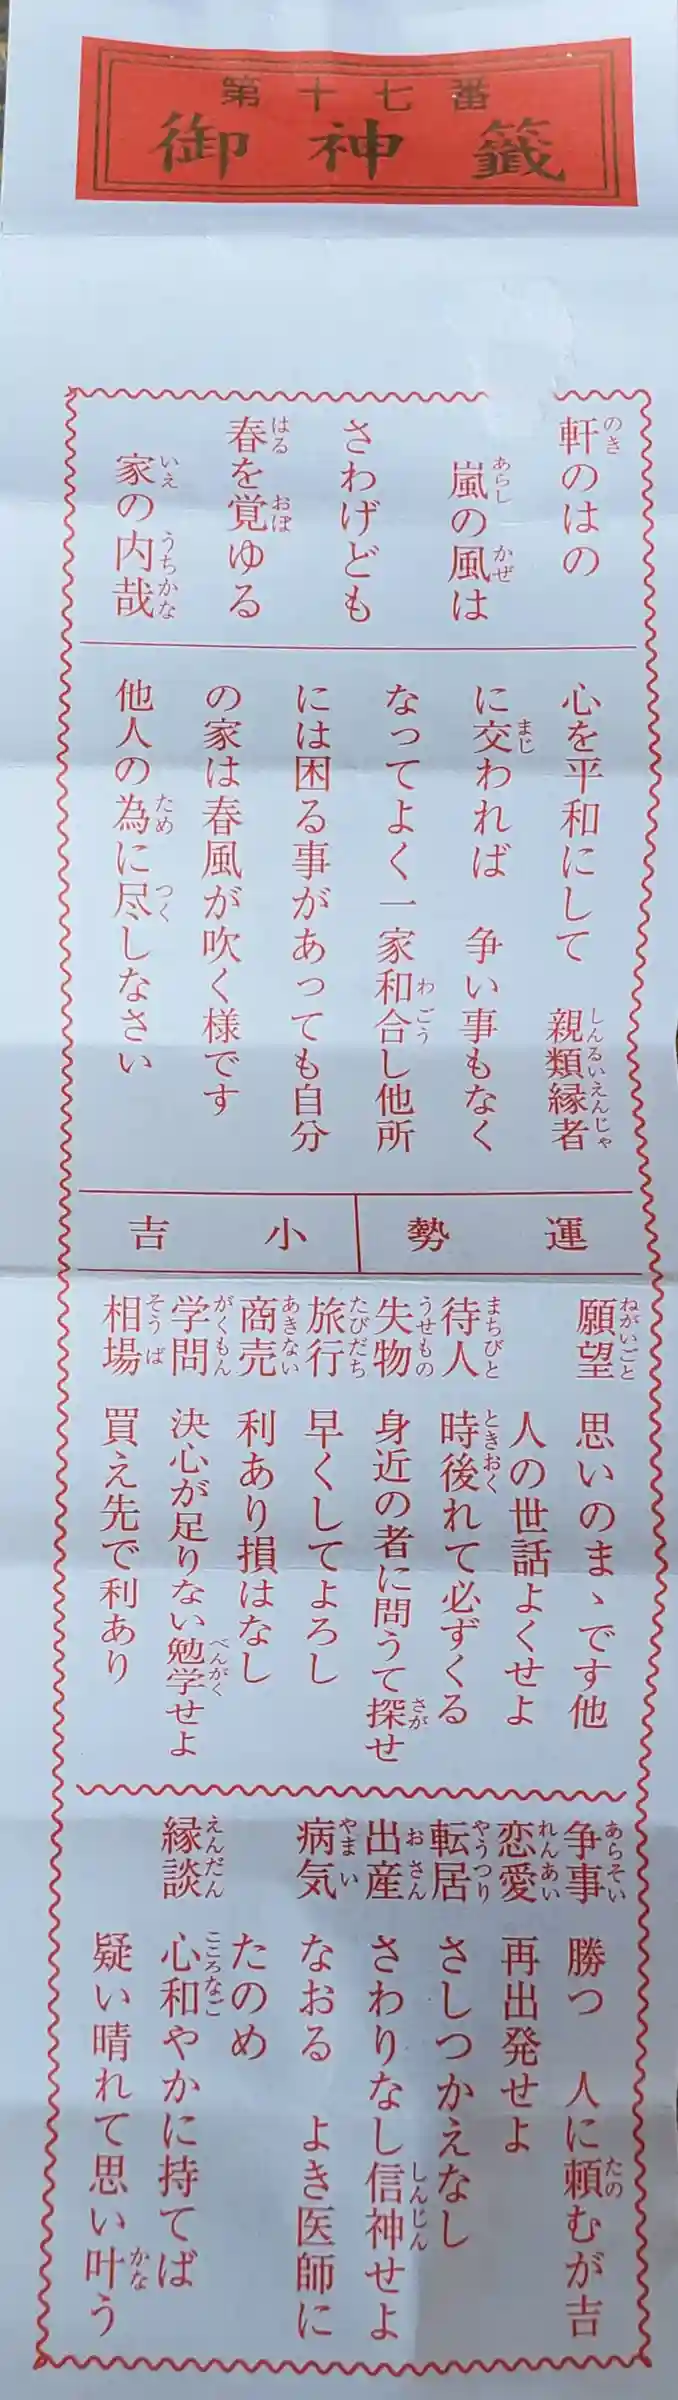 第十七番
御神籤
軒のはの
嵐の風は
さわげども
春を覚ゆる
家の内哉
心を平和にして　親類縁者
に交われば　争い事もなく
なってよく一家和合し他所
には困る事があっても自分
の家は春風が吹く様です
他人の為に尽しなさい
運勢　小吉
願望　思いのまゝです他
人の世話よくせよ
待人　時後れて必ずくる
失物　身近の者に問うて探せ
旅行　早くしてよろし
商売　利あり損はなし
学問　決心が足りない勉学せよ
相場　買え先で利あり
争事　勝つ　人に頼むが吉
恋愛　再出発せよ
転居　さしつかえなし
出産　さわりなし信神せよ
病気　なおる　よき医師に
たのめ
縁談　心和やかに持てば
疑い晴れて思い叶う